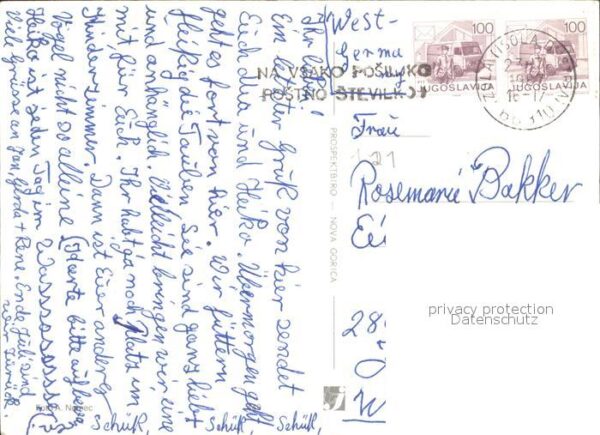 Ihr Lieben!
Ein lieber Gruß von hier sendet
Euch und Heiko. Übermorgen geht
geht es fort von hier. Wir füttern
fleißig die Tauben. Sie sind ganz lieb
und anhänglich. Vielleicht bringen wir eine
mit für Euch. Ihr habt ja noch Platz im
Kinderzimmer. Dann ist Euer anderer
Vogel nicht so alleine (Karte bitte aufheben
Heiko ist jeden Tag im Wassssssssser
Viele Grüsse an Jan, Gerda + Rene. Ende Juli sind
wir zurück.
Schüß, Schüß, Schüß,
Foto A. Nemec
PROSPEKTBIRO - NOVA GORICA
West-
Germa
100
JUGOSLAVIJA
100
JUGOSLAVIJA
NA VSAKO POŠILJKO
POŠTNO ŠTEVILKO!
Frau
Rosemarie Bakker
28-
W
privacy protection
Datenschutz